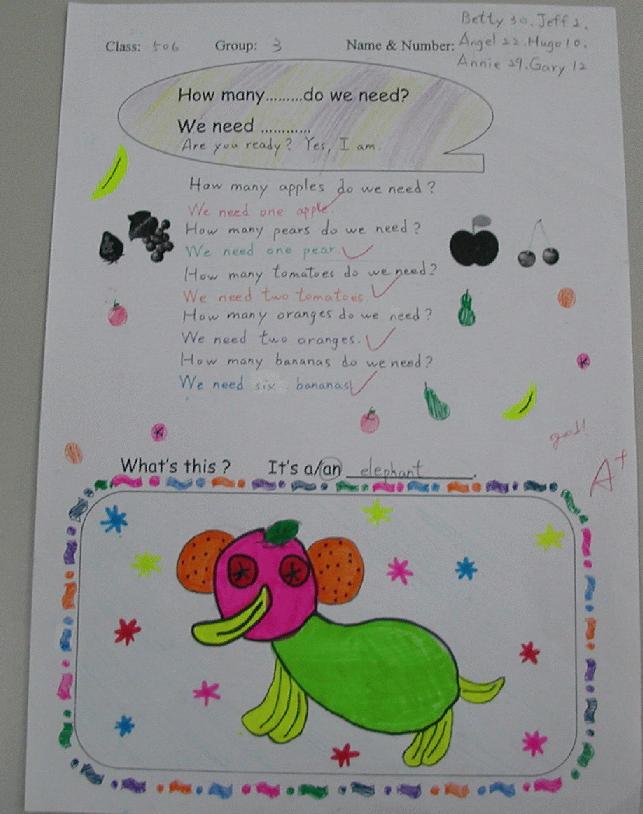 Betty 30. Jeff 2.
Class: 506 Group: 3 Name & Number: Angel 22. Hugo 10.
Annie 29. Gary 12
How many.........do we need?
We need ............
Are you ready? Yes, I am.
How many apples do we need?
We need one apple.
How many pears do we need?
We need one pear.
How many tomatoes do we need?
We need two tomatoes.
How many oranges do we need?
We need two oranges.
How many bananas do we need?
We need six bananas.
good!
A+
What's this? It's a/an elephant.